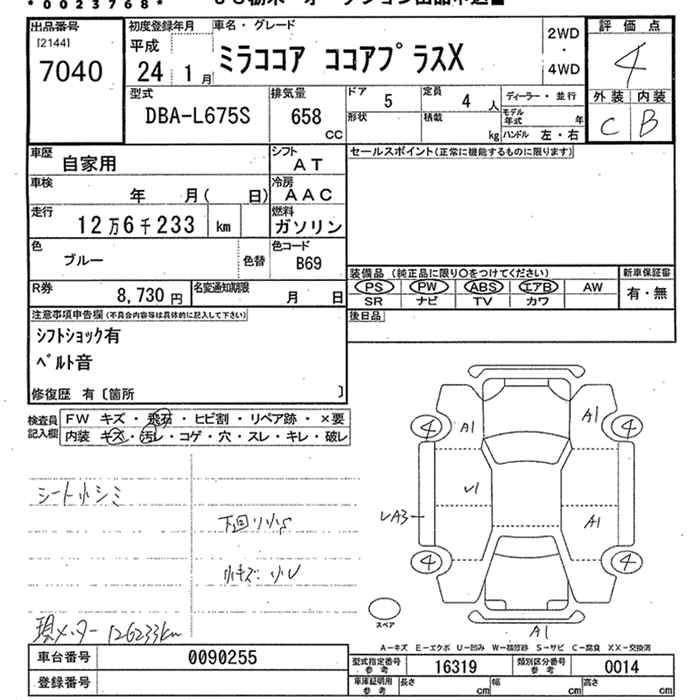 * 0 0 2 3 7 6 8 *
出品番号
[2144]
7040
初度登録年月
平成
24 1 月
車名・グレード
ミラココア ココアプラスX
2WD
・
4WD
評価点
4
外装 内装
C B
型式
DBA-L675S
排気量
658
CC
ドア
5
定員
4 人
形状
積載
kg
ディーラー・並行
モデル年式 年
ハンドル 左・右
車歴
自家用
シフト
AT
セールスポイント(正常に機能するものに限ります)
車検
年 月( 日)
冷房
AAC
走行
12万6千233 km
燃料
ガソリン
色
ブルー
色替
色コード
B69
装備品 (純正品に限り○をつけてください)
新車保証書
PS PW ABS エアB AW
有・無
SR ナビ TV カワ
R券
8,730 円
名変通知期限
月 日
後日品
注意事項申告欄 (不具合内容等は具体的に記入して下さい)
シフトショック有
ベルト音
修復歴 有〔箇所 〕
検査員記入欄
FW キズ・飛石・ヒビ割・リペア跡・×要
内装 キズ・汚レ・コゲ・穴・スレ・キレ・破レ
シート小シミ
下回り小S
小キズ.小U
現メーター 126233km
4 A1 A1 4
U1
UA3
A1
4 4
スペア
A1
A-キズ E-エクボ U-凹み W-補修跡 S-サビ C-腐食 XX-交換済
車台番号 0090255
型式指定番号 参考 16319
類別区分番号 参考 0014
登録番号
車庫証明用 参考
長さ cm
幅 cm
高さ cm